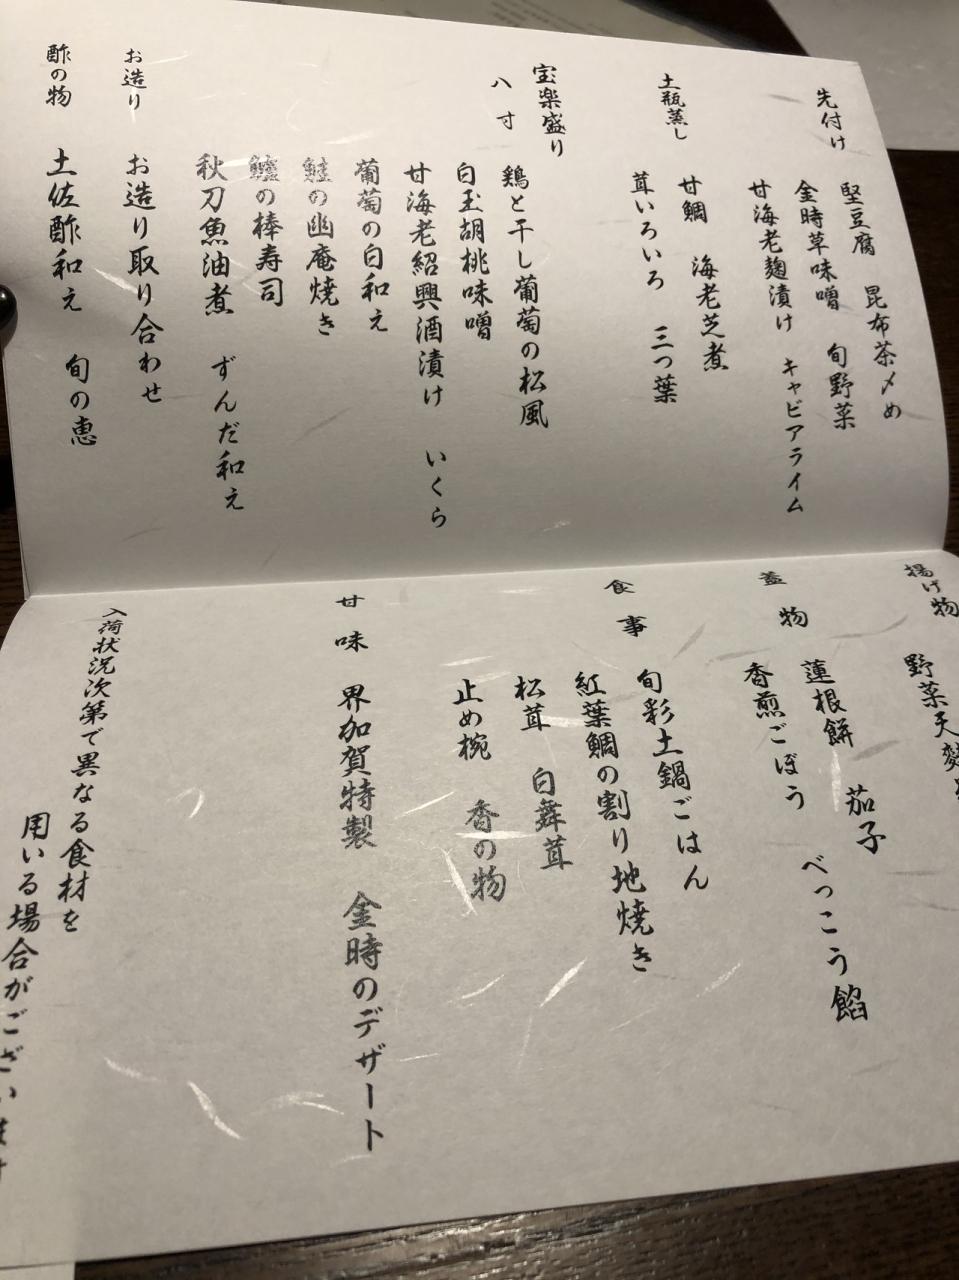 先付け
堅豆腐 昆布茶〆め
金時草味噌 旬野菜
甘海老麹漬け キャビアライム
土瓶蒸し
甘鯛 海老芝煮
茸いろいろ 三つ葉
宝楽盛り
八寸
鶏と干し葡萄の松風
白玉胡桃味噌
甘海老紹興酒漬け いくら
葡萄の白和え
鮭の幽庵焼き
の棒寿司
秋刀魚油煮 ずんだ和え
お造り
お造り取り合わせ
酢の物
土佐酢和え 旬の恵
揚げ物
野菜天麩
蓋物
蓮根餅 茄子
香煎ごぼう べっこう餡
食事
旬彩土鍋ごはん
紅葉鯛の割り地焼き
松茸 白舞茸
止め椀 香の物
甘味
界加賀特製 金時のデザート
入荷状況次第で異なる食材を
用いる場合がござい